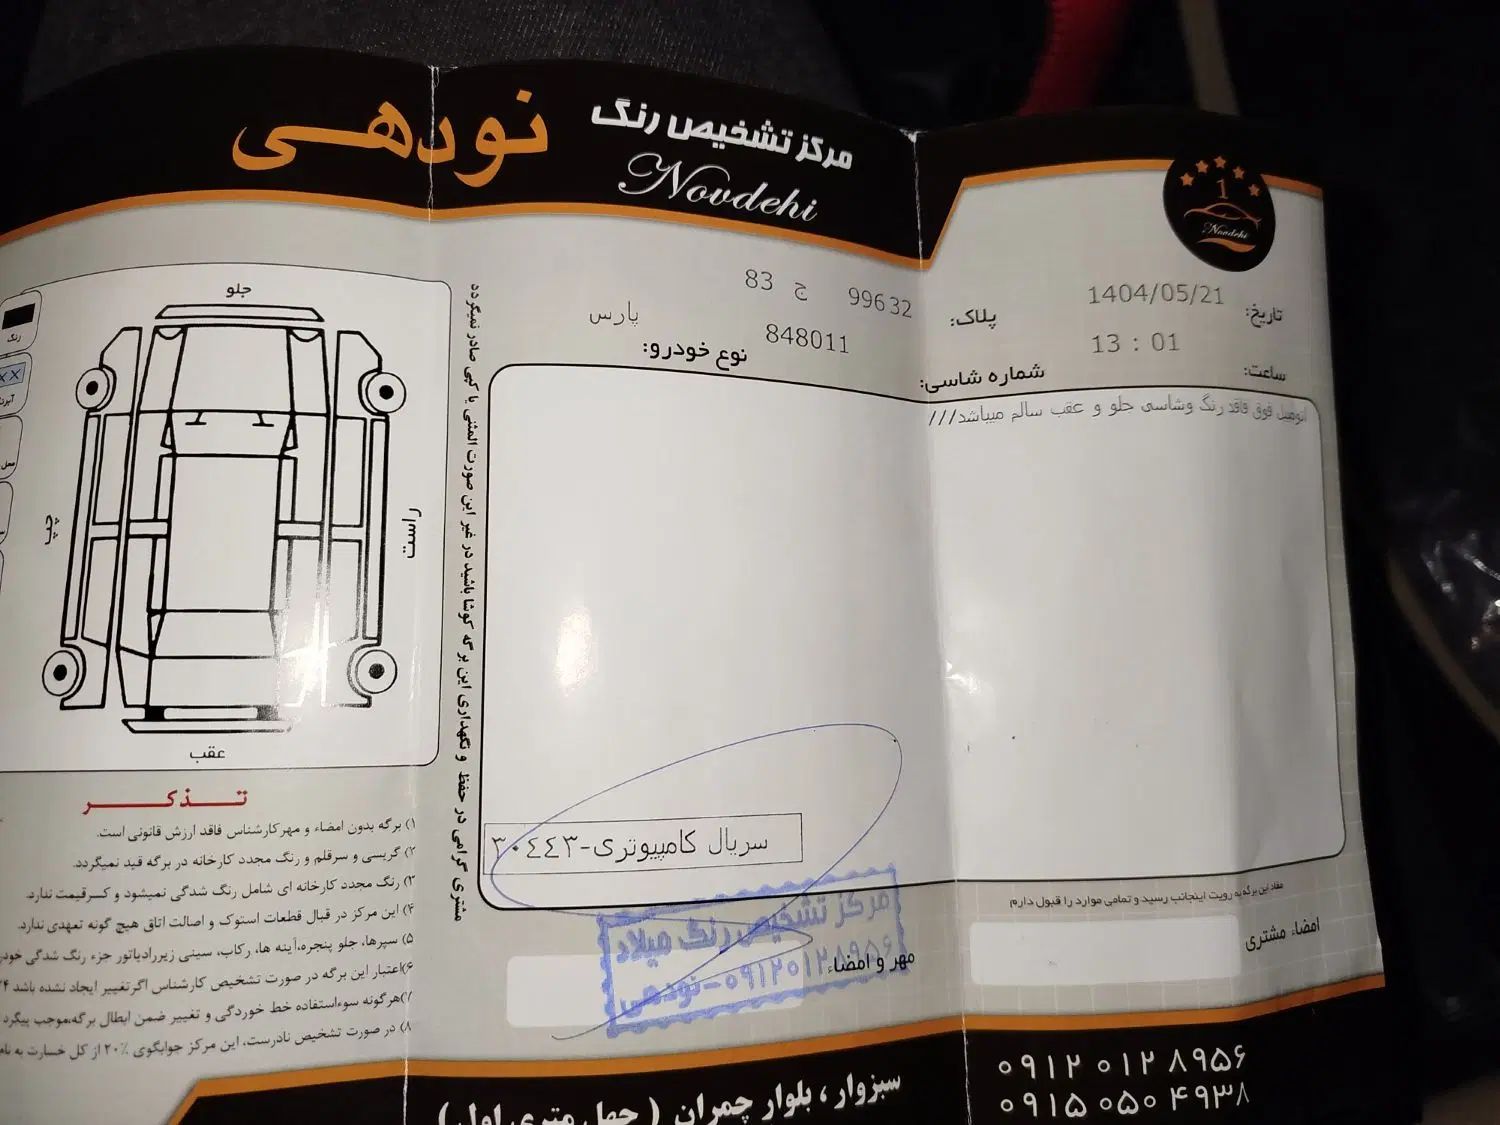 مرکز تشخیص رنگ
نودهی
Novdehi
1
Novdehi
تاریخ: 1404/05/21
ساعت: 13 : 01
پلاک: 99632 ج 83
شماره شاسی: 848011
نوع خودرو: پارس
اتومبیل فوق فاقد رنگ وشاسی جلو و عقب سالم میباشد///
سریال کامپیوتری-۳۰٤٤۳
مفاد این برگه به رویت اینجانب رسید و تمامی موارد را قبول دارم
امضاء مشتری
مهر و امضاء
مرکز تشخیص رنگ میلاد
۰۹۱۲۰۱۲۸۹۵۶-نودهی
مشتری گرامی در حفظ و نگهداری این برگه کوشا باشید در غیر این صورت المثنی یا کپی صادر نمیگردد
جلو
چپ
راست
عقب
رنگ
××
تـذکـر
۱) برگه بدون امضاء و مهرکارشناس فاقد ارزش قانونی است.
۲) گریسی و سرقلم و رنگ مجدد کارخانه در برگه قید نمیگردد.
۳) رنگ مجدد کارخانه ای شامل رنگ شدگی نمیشود و کسرقیمت ندارد.
۴) این مرکز در قبال قطعات استوک و اصالت اتاق هیچ گونه تعهدی ندارد.
۵) سپرها، جلو پنجره، آینه ها، رکاب، سینی زیررادیاتور جزء رنگ شدگی
۶) اعتبار این برگه در صورت تشخیص کارشناس اگرتغییر ایجاد نشده باشد
۷) هرگونه سوءاستفاده خط خوردگی و تغییر ضمن ابطال برگه،موجب پیگرد
۸) در صورت تشخیص نادرست، این مرکز جوابگوی ۲۰٪ از کل خسارت
سبزوار ، بلوار چمران ( چهل متری اول )
۰۹۱۲ ۰۱۲ ۸۹۵۶
۰۹۱۵ ۰۵۰ ۴۹۳۸